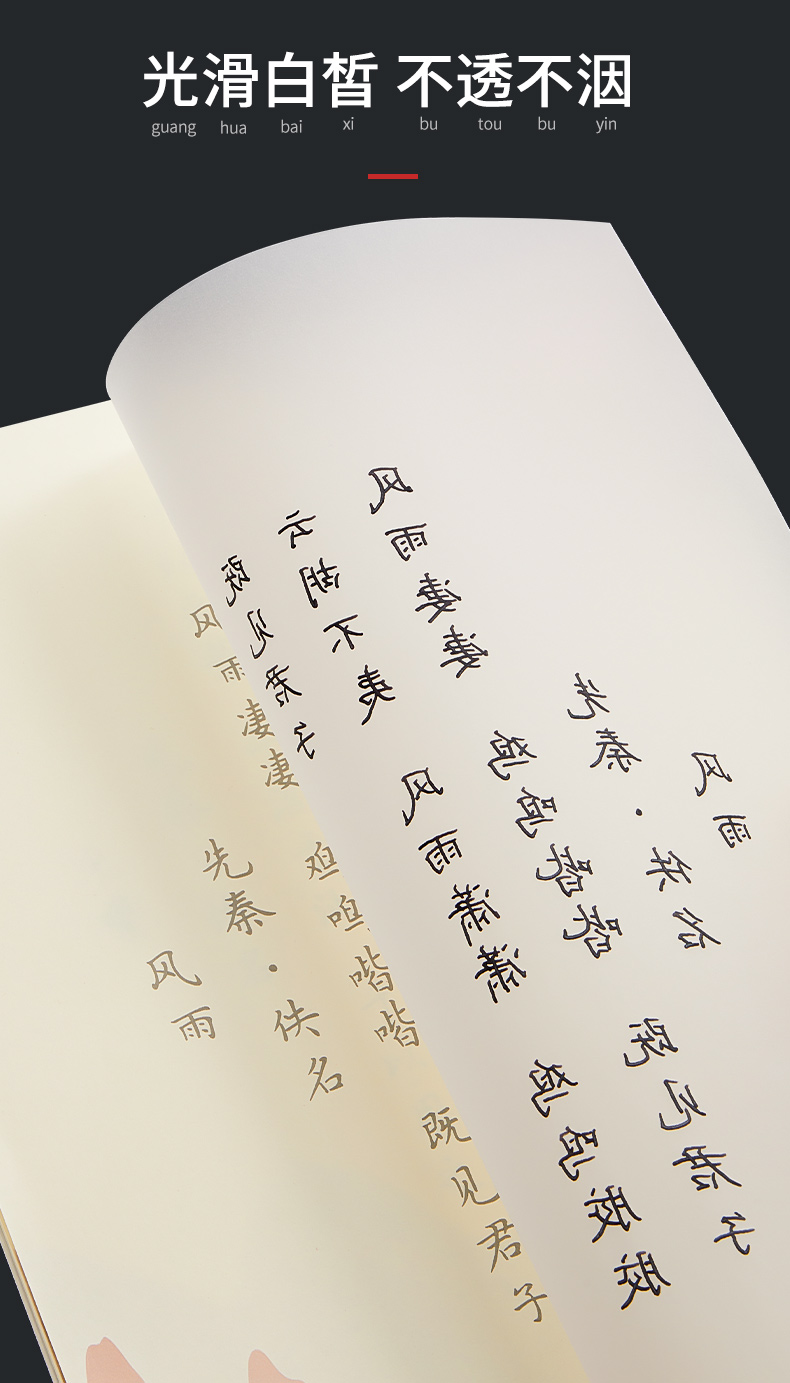 光滑白皙 不透不洇
guang hua bai xi bu tou bu yin
风雨
先秦·佚名
风雨凄凄 鸡鸣喈喈 既见君子
云胡不夷 风雨潇潇 鸡鸣胶胶
既见君子
风雨
先秦·佚名
风雨凄凄 鸡鸣喈喈 既见君子